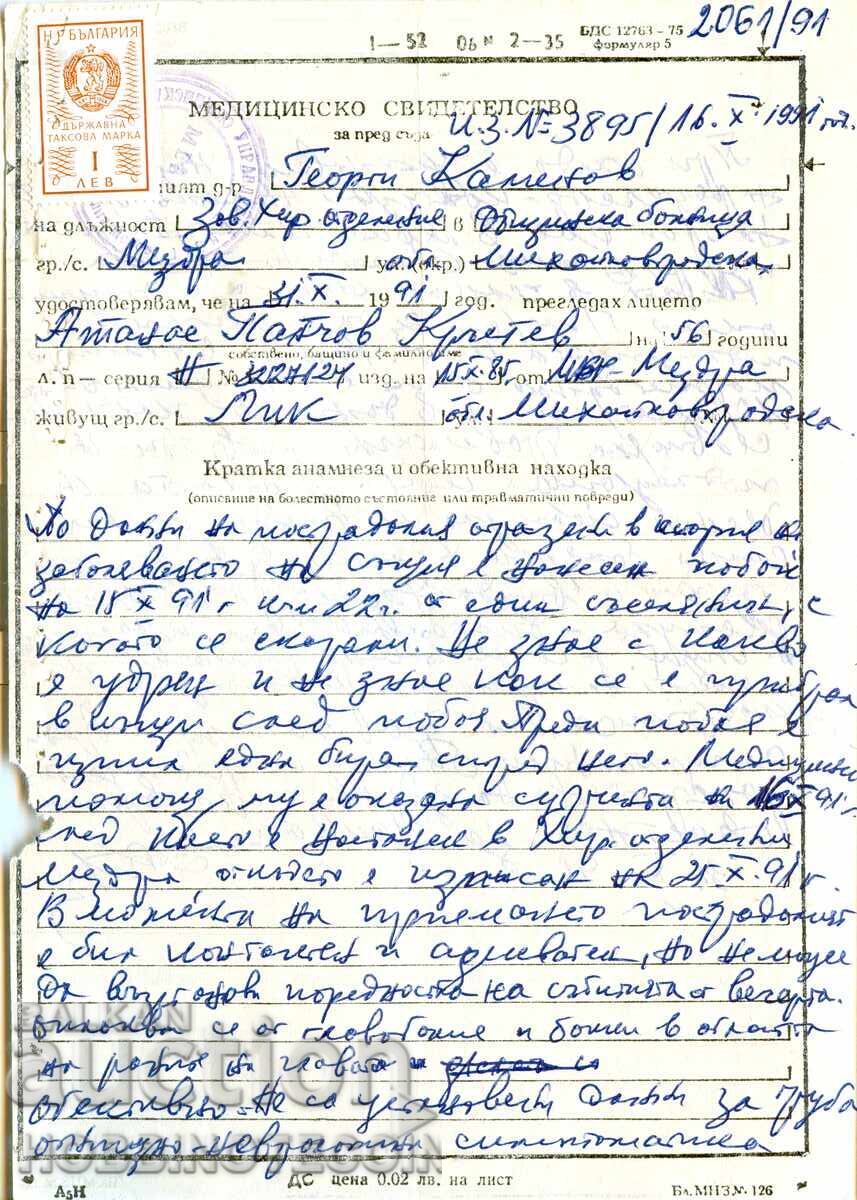 2061/91
БДС 12763-75
1-52 06 N 2-35
формуляр 5
НР БЪЛГАРИЯ
ДЪРЖАВНА
ТАКСОВА МАРКА
1
ЛЕВ
МЕДИЦИНСКО СВИДЕТЕЛСТВО
за пред съда
И.З. № 3895/16.X.1991 год.
ният д-р Георги Каменов
на длъжност Зав. Хир. отделение в Общинска болница
гр./с. Мездра ул. (окр.) обл. Михайловградска
удостоверявам, че на 31.X. 1991 год. прегледах лицето
Атанас Кръстев на 56 години
собствено, бащино и фамилно име
л. п — серия П № 3227127 изд. на 15.X.85 от МВР-Мездра
живущ гр./с. ул. обл. Михайловградска
Кратка анамнеза и обективна находка
(описание на болестното състояние или травматични повреди)
По данни на пострадалия отразени в история на
заболяването на същия е нанесен побой
на 15 X 91 г. към 22 г. от един съселянин, с
когото се скарали. Не знае с какво
е ударен и не знае как се е прибрал
в къщи след побоя. Преди побоя е
изпил една бира според него. Медицинска
помощ му е оказана сутринта на 16 X 91 г.
след което е настанен в Хир. отделение
Мездра откъдето е изписан на 25 X. 91 г.
В момента на приемането пострадалият
е бил контактен и адекватен, но не може
да възстанови поредността на събитията от вечерта.
Оплаква се от главоболие и болки в областта
на раната на главата
обективно - Не са установени данни за груба
огнищно-неврологична симптоматика
BALKAN
auction
HOBBINGO.COM
А5Н
ДС цена 0.02 лв. на лист
Бл. МНЗ № 126